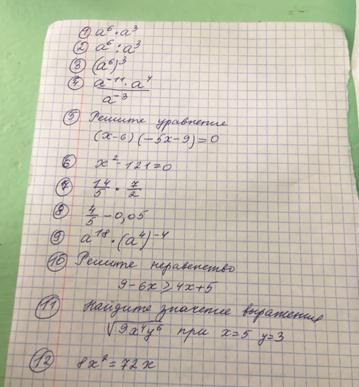 ① a⁶ · a³
② a⁶ : a³
③ (a⁶)³
④ a⁻¹¹ · a⁴
a⁻³
⑤ Решите уравнение
(x-6)(-5x-9)=0
⑥ x²-121=0
⑦ 14/5 · 7/2
⑧ 4/5 - 0,05
⑨ a¹⁸ · (a⁴)⁻⁴
⑩ Решите неравенство
9-6x ≥ 4x+5
⑪ Найдите значение выражения
√9x⁴y⁶ при x=5 y=3
⑫ 8x²=72x